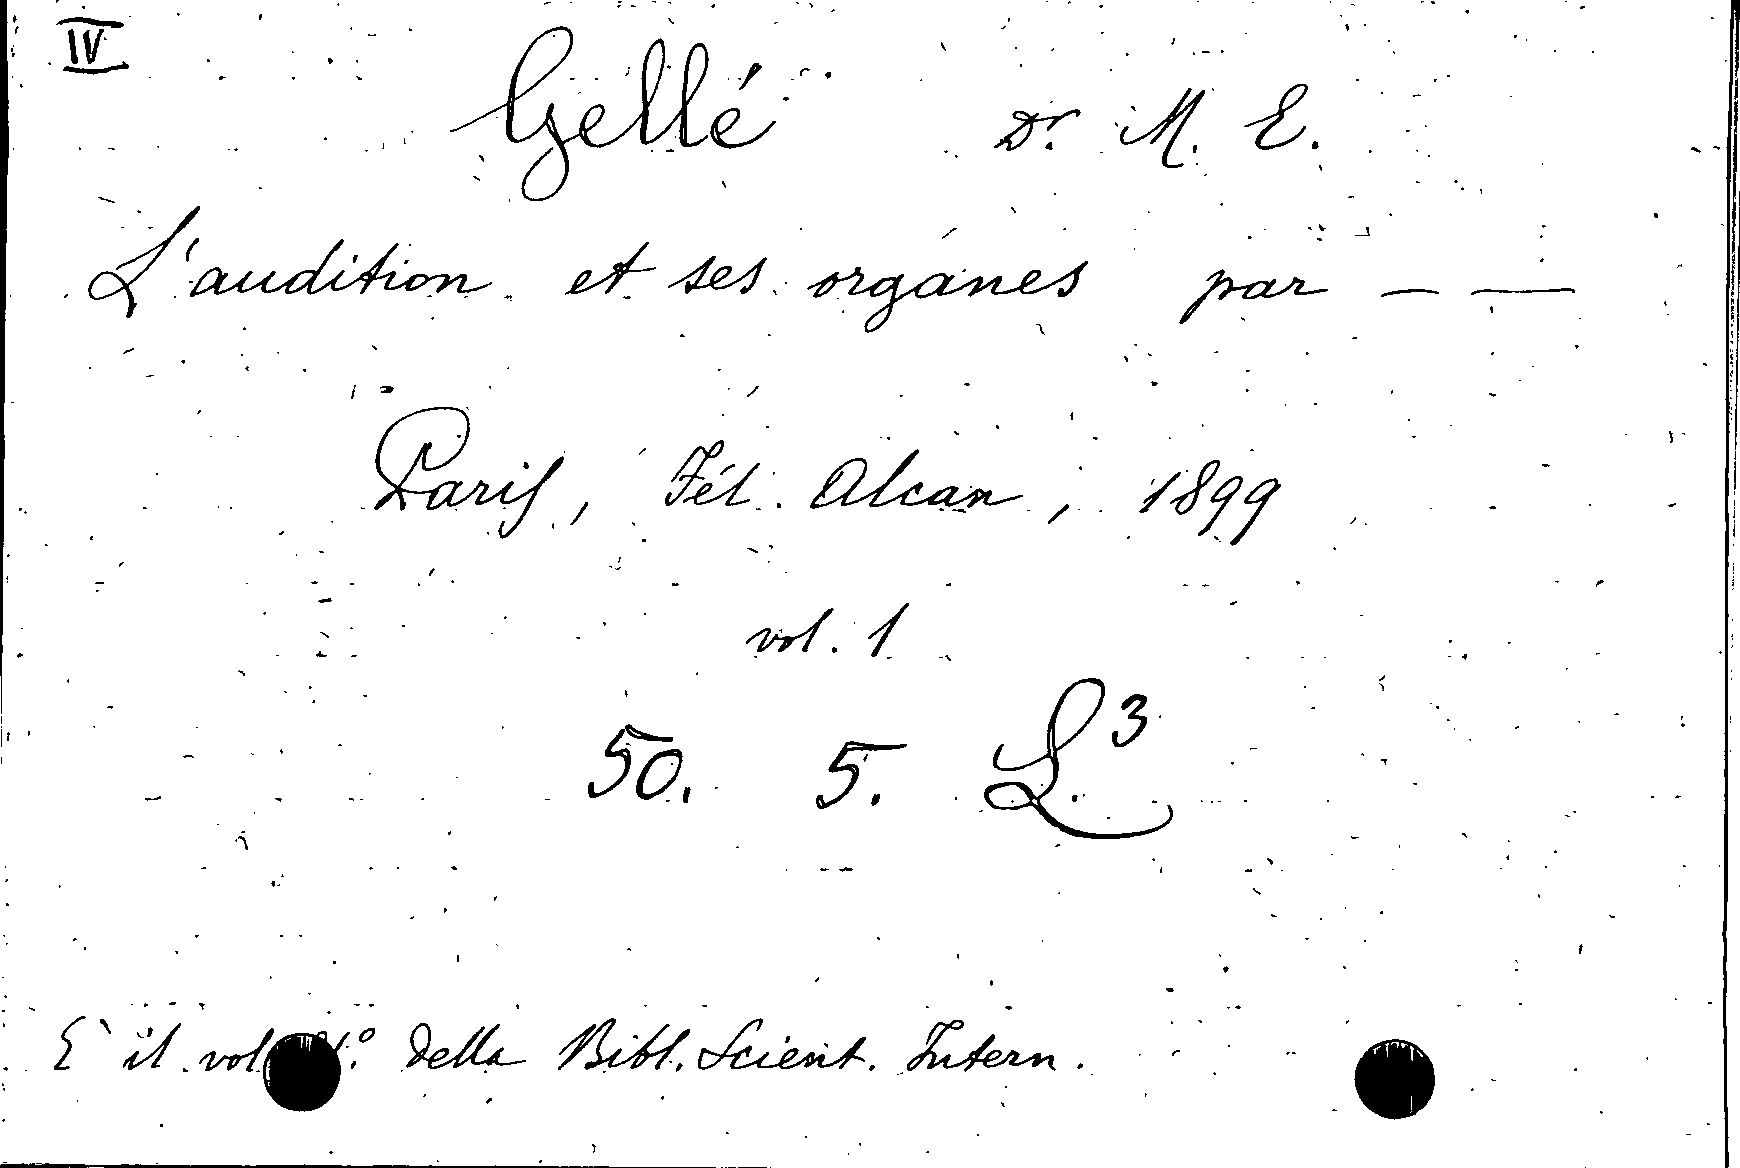 IV
Gellé Dr. M. E.
L'audition et ses organes par — —
Paris, Fél. Alcan, 1899
vol. 1
50. 5. L.³
E' il vol della Bibl. Scient. Intern.